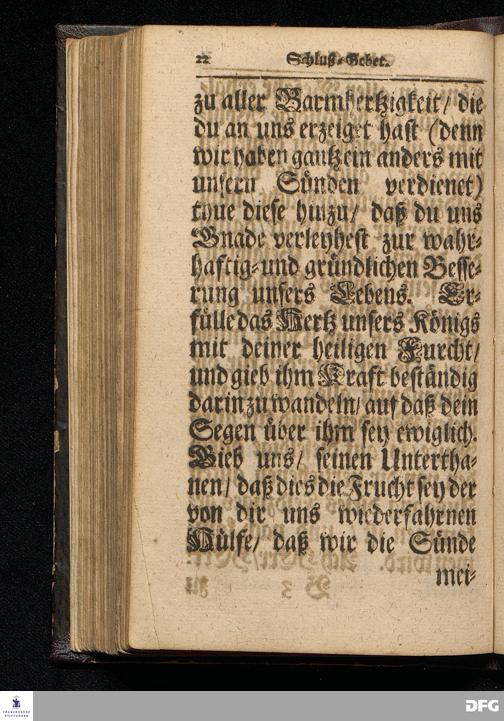 22 Schluß-Gebet.
zu aller Barmhertzigkeit/ die
du an uns erzeiget hast (denn
wir haben gantz ein anders mit
unsern Sünden verdienet)
thue diese hinzu/ daß du uns
Gnade verleyhest zur wahr-
haftig- und gründlichen Besse-
rung unsers Lebens. Er-
fülle das Hertz unsers Königs
mit deiner heiligen Furcht/
und gieb ihm Kraft beständig
darin zu wandeln/ auf daß dein
Segen über ihm sey ewiglich.
Gieb uns/ seinen Untertha-
nen/ daß dies die Frucht sey der
von dir uns wiederfahrnen
Hülfe/ daß wir die Sünde
mei-
FRANCKESCHE
STIFTUNGEN
DFG